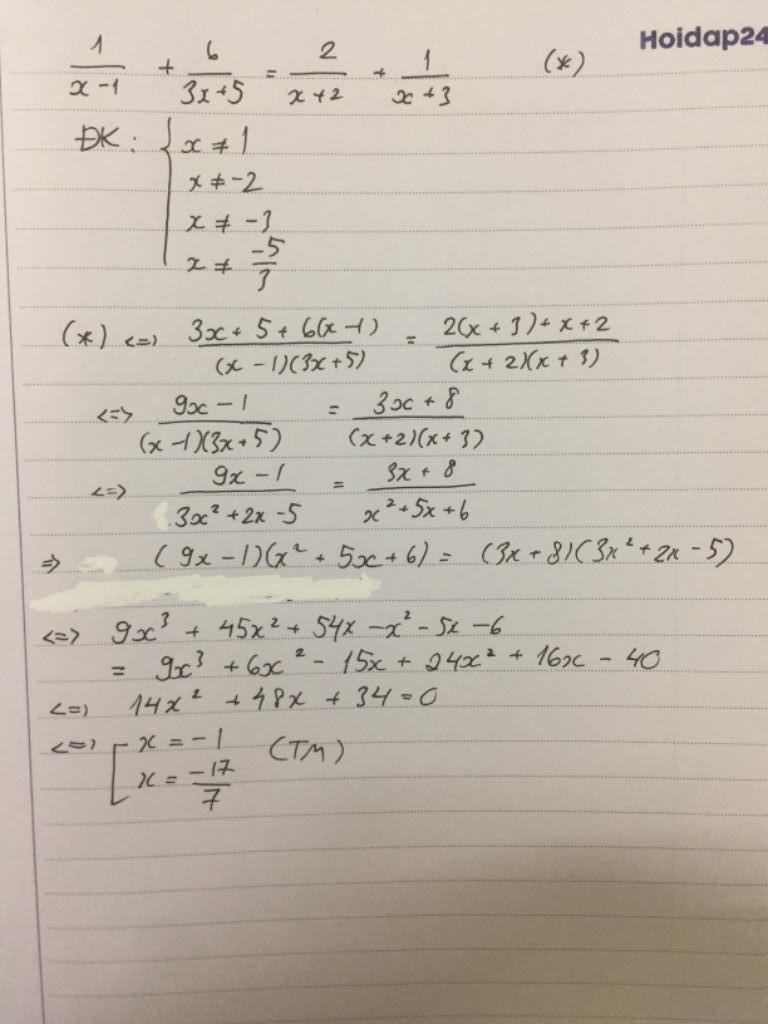 Hoidap24
1/(x-1) + 6/(3x+5) = 2/(x+2) + 1/(x+3) (*)
ĐK: { x ≠ 1
x ≠ -2
x ≠ -3
x ≠ -5/3
(*) <=> (3x + 5 + 6(x-1))/((x-1)(3x+5)) = (2(x+3)+x+2)/((x+2)(x+3))
<=> (9x-1)/((x-1)(3x+5)) = (3x+8)/((x+2)(x+3))
<=> (9x-1)/(3x²+2x-5) = (3x+8)/(x²+5x+6)
=> (9x-1)(x²+5x+6) = (3x+8)(3x²+2x-5)
<=> 9x³ + 45x² + 54x - x² - 5x - 6
= 9x³ + 6x² - 15x + 24x² + 16x - 40
<=> 14x² + 48x + 34 = 0
<=> [ x = -1 (TM)
x = -17/7